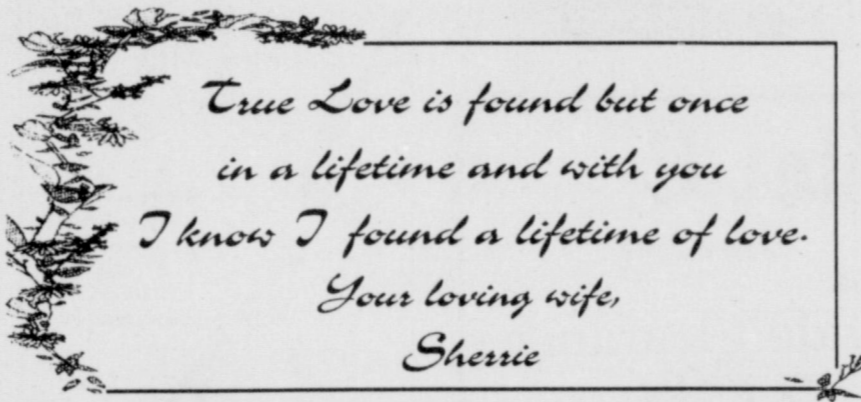 True Love is found but once
in a lifetime and with you
I know I found a lifetime of love.
Your loving wife,
Sherrie